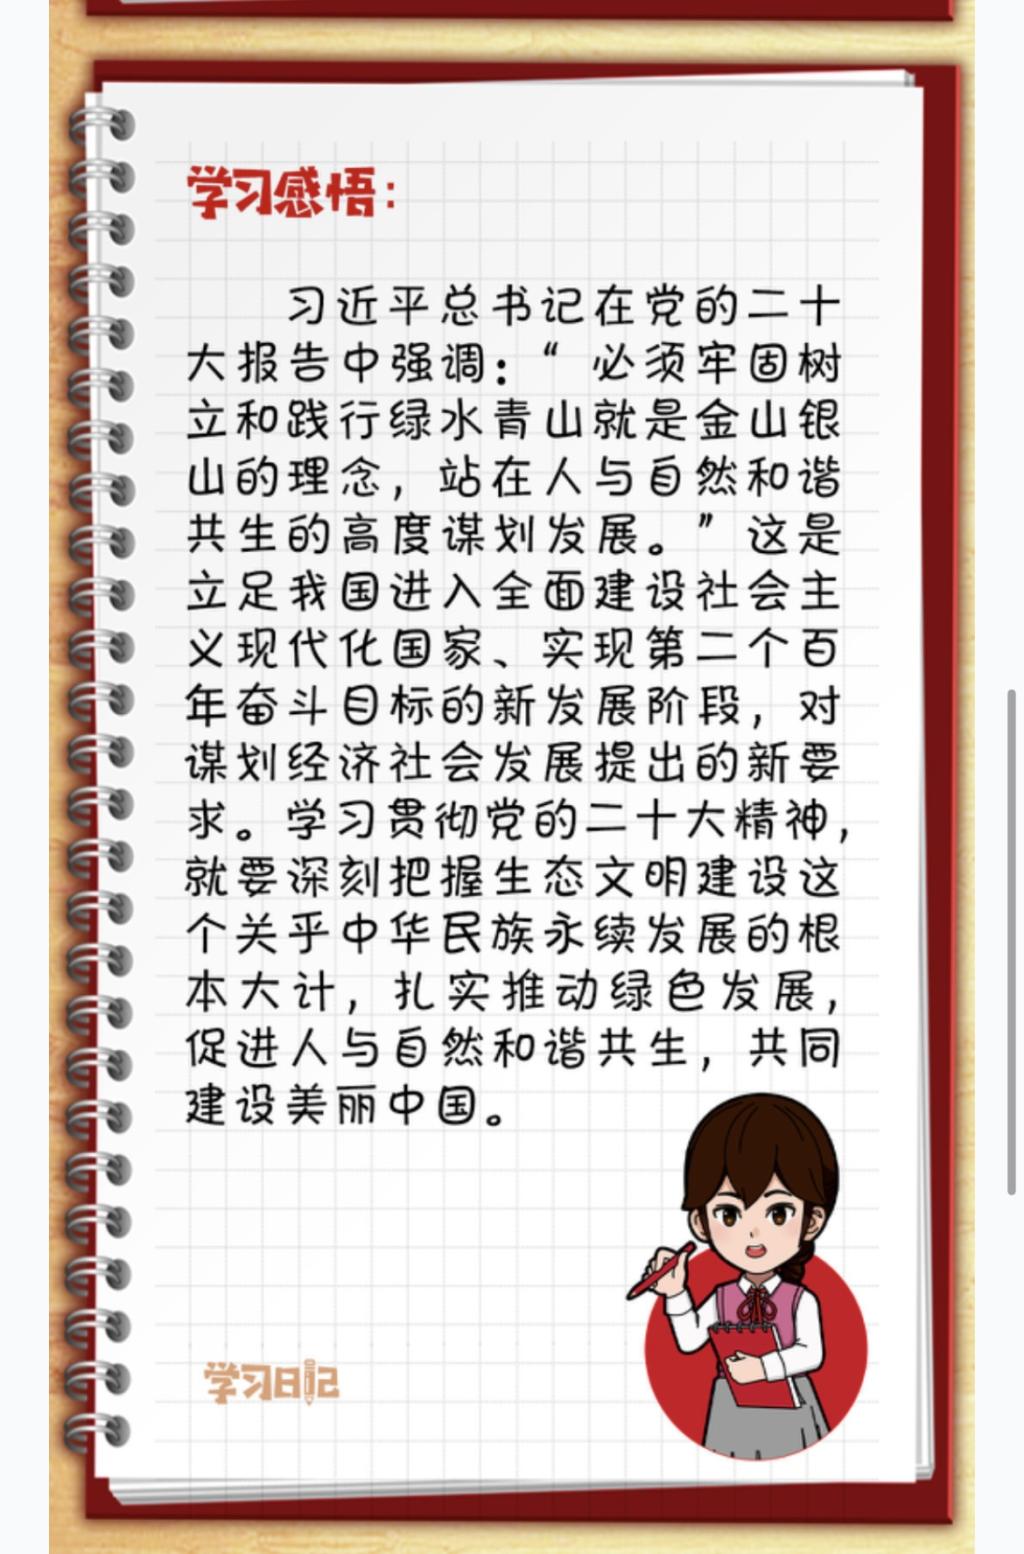 学习感悟：
习近平总书记在党的二十
大报告中强调：“必须牢固树
立和践行绿水青山就是金山银
山的理念，站在人与自然和谐
共生的高度谋划发展。”这是
立足我国进入全面建设社会主
义现代化国家、实现第二个百
年奋斗目标的新发展阶段，对
谋划经济社会发展提出的新要
求。学习贯彻党的二十大精神，
就要深刻把握生态文明建设这
个关乎中华民族永续发展的根
本大计，扎实推动绿色发展，
促进人与自然和谐共生，共同
建设美丽中国。
学习日记